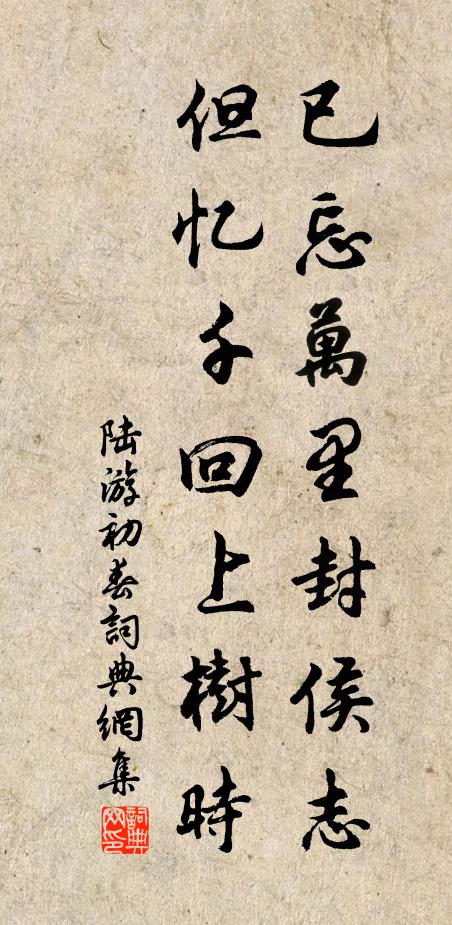 已忘萬里封侯志
但忆千回上樹時
陆游初春詞典網集
詞典
网印